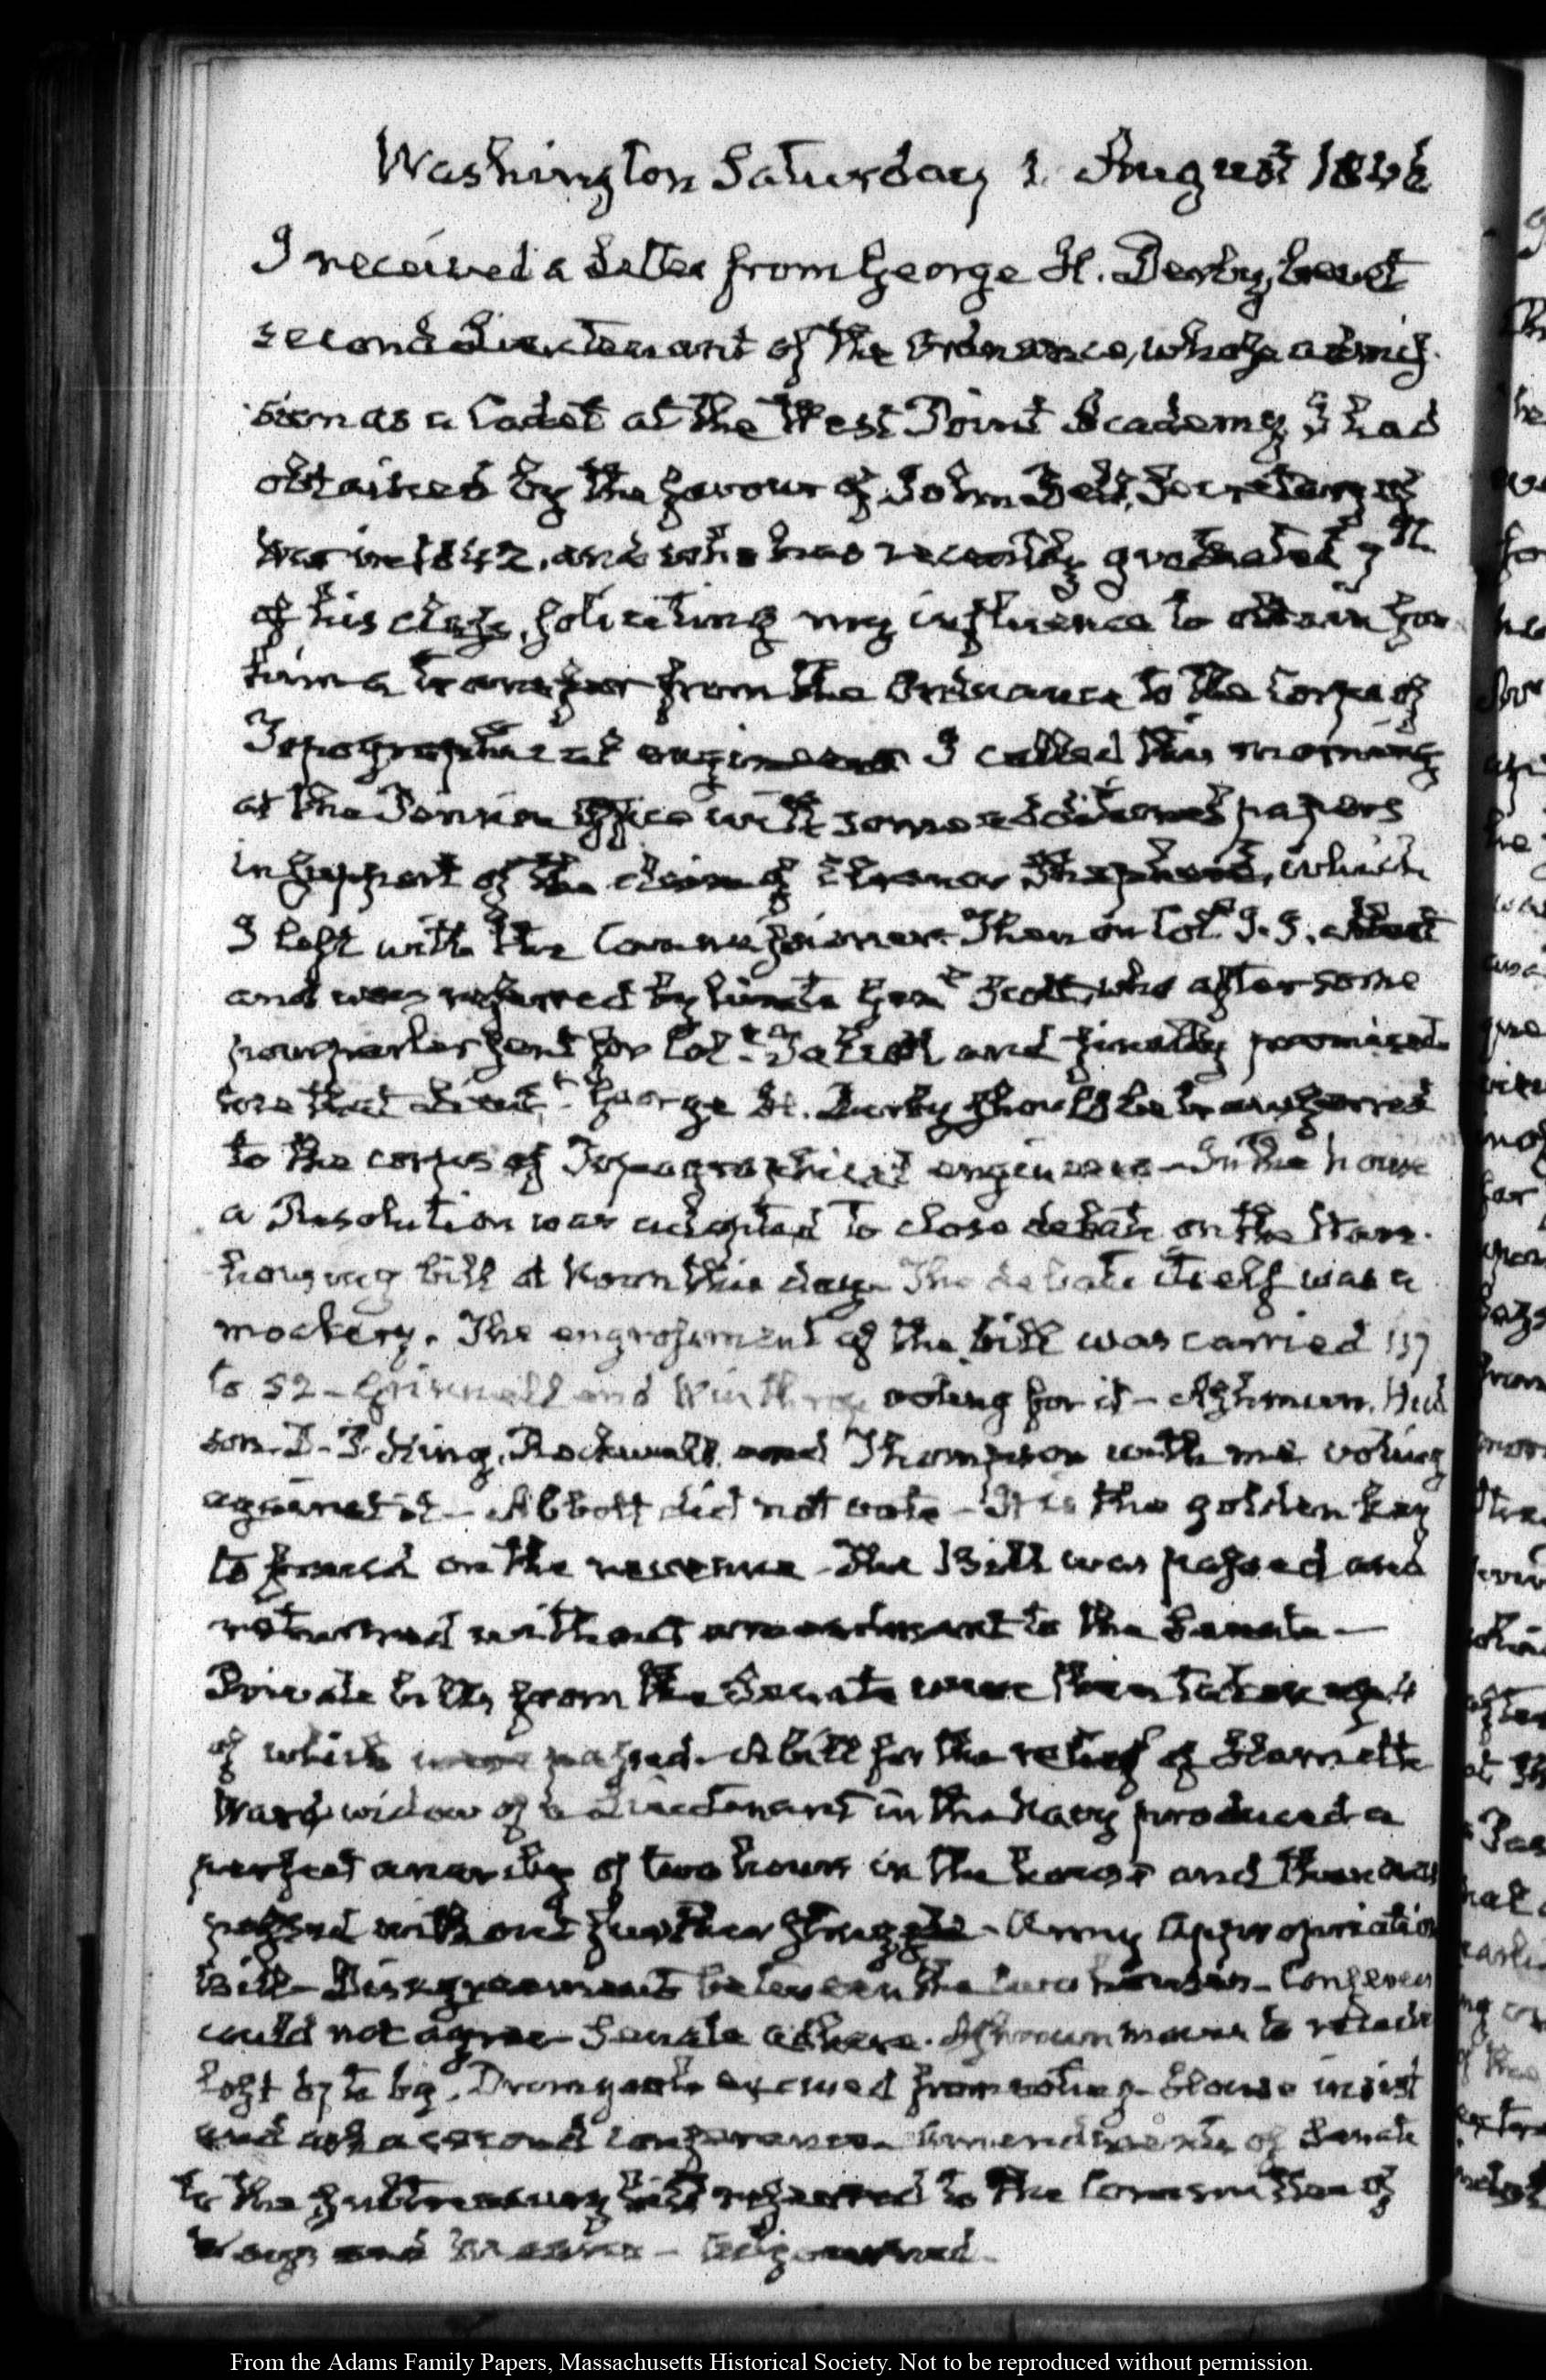 Washington Saturday 1. August 1846
I received a Letter from George H. Derby, brevet
second Lieutenant of the Ordnance, whose admis-
sion as a Cadet at the West Point Academy I had
obtained by the favour of John Bell, Secretary of
War in 1842, and who has recently graduated 7th
of his class, soliciting my influence to obtain for
him a transfer from the Ordnance to the Corps of
Topographical engineers I called this morning
at the Pension Office with some additional papers
in support of the claim of Eleanor Shephard, which
I left with the Commissioner. Then on Col. J. J. Abert
and was referred by him to Genl Scott, who after some
pourparler sent for Col. Talcott and finally promised
me that Lieut. George H. Derby should be transferred
to the corps of Topographical engineers – In the house
a Resolution was adopted to close debate on the Ware-
housing bill at Noon this day – The debate itself was a
mockery. The engrossment of the bill was carried 117
to 52 – Grinnell and Winthrop voting for it – Ashmun, Hud-
son D. P. King, Rockwell and Thompson with me voting
against it – Abbott did not vote – It is the golden key
to fraud on the revenue – The Bill was passed and
returned without amendment to the Senate –
Private bills from the Senate were then taken up 4
of which were passed – A bill for the relief of
Ward, widow of a Lieutenant in the Navy produced a
perfect anarchy of two hours in the house and then was
passed without further struggle – Army Appropriation
bill – Disagreement between the two houses – Conferees
could not agree – Senate adhere. Ashmun moves to recede
lost 57 to 69. Dromgoole excused from voting – House insist
and ask a second conference – Amendments of Senate
to the subtreasury bill referred to the Committee of
Ways and Means – Adjourned –
From the Adams Family Papers, Massachusetts Historical Society. Not to be reproduced without permission.